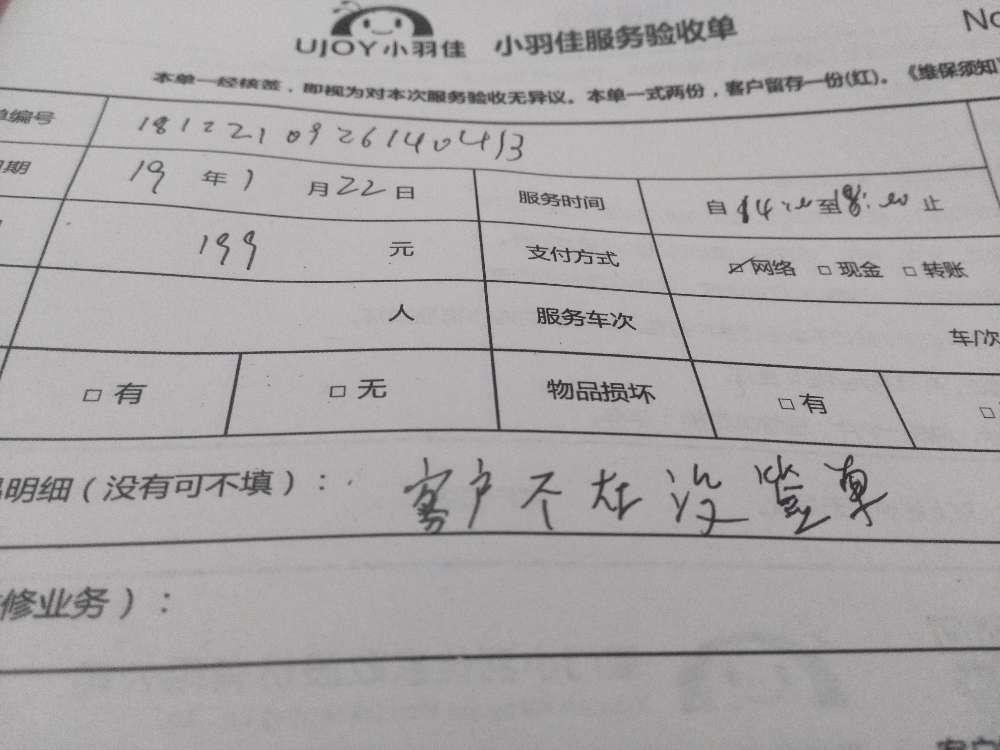 UJOY小羽佳 小羽佳服务验收单 No
本单一经核签，即视为对本次服务验收无异议。本单一式两份，客户留存一份(红)。《维保须知》
编号 18122109261404413
期 19年1月22日 服务时间 自14:00至18:00止
199元 支付方式 ☑网络 □现金 □转账
人 服务车次 车/次
□有 □无 物品损坏 □有 □
明细（没有可不填）： 客户不在没签单
修业务）：